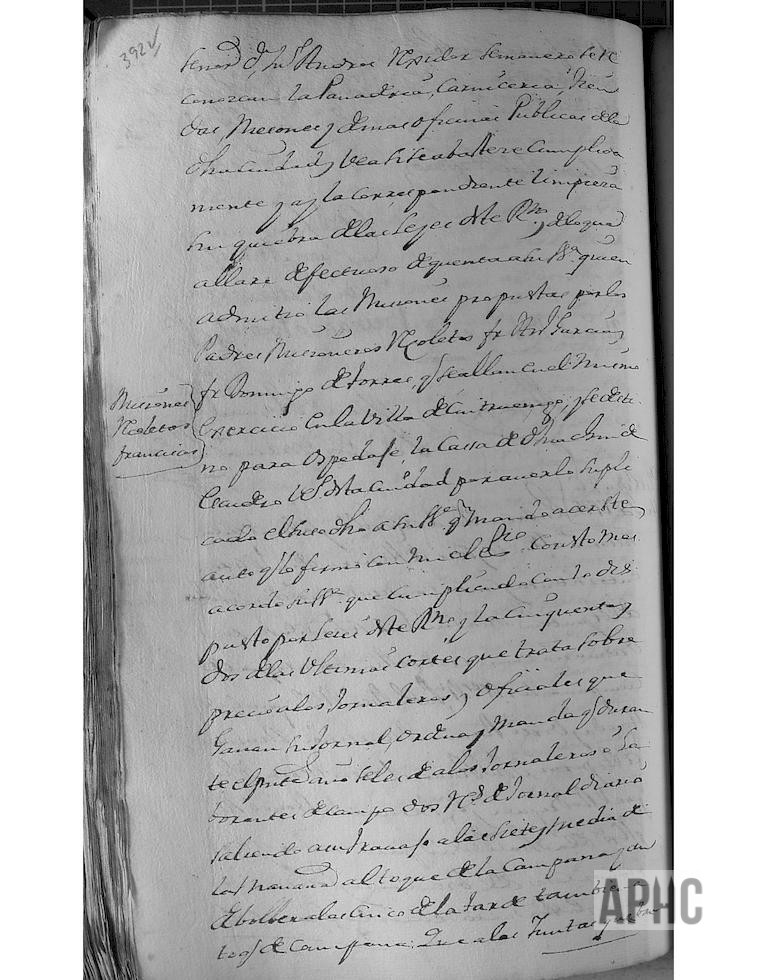 392v
señor Dn Jul Andres Rexidor semanero se re
conozcan la Panadria, Carniceria, tien
das, Mesones y demas oficinas Publicas de la
dha ciudad y vea si se abasteze cumplida
mente y con la correspondiente limpieza
sin quiebra de las Leyes deste Rno, y de lo que
allare defectuoso de quenta a su Sª quien
admitio las Misiones propuestas por los
Padres Misioneros Recoletos fr Anto Garcia y
fr Domingo de torres, q se allan en el mismo
exercicio en la Villa de Cintruenigo, y se desti
no para ospedase, la Cassa de
Leandro vezº desta ciudad por averlo supli
cado el suso dho a su Sª q mando acer este
auto q lo firmo con mi el Srio. Con esto mas
acordo su Sª que cumpliendo con lo dis
puesto por Leies deste Rno y la cinquenta y
dos de las ultimas cortes que trata sobre
precio a los Jornaleros y oficiales que
ganan su Jornal, ordena y manda q duran
te el pnte año se les de a los Jornaleros o La
borantes de campo dos Rs de Jornal diario
saliendo a su trauajo a las siete y media de
la mañana al toque de la Campana, y de
bolber a las cinco de la tarde tambien a
toq de Campana: Que a las Juntas
Misiones
Recoletos
franciscos
APHC